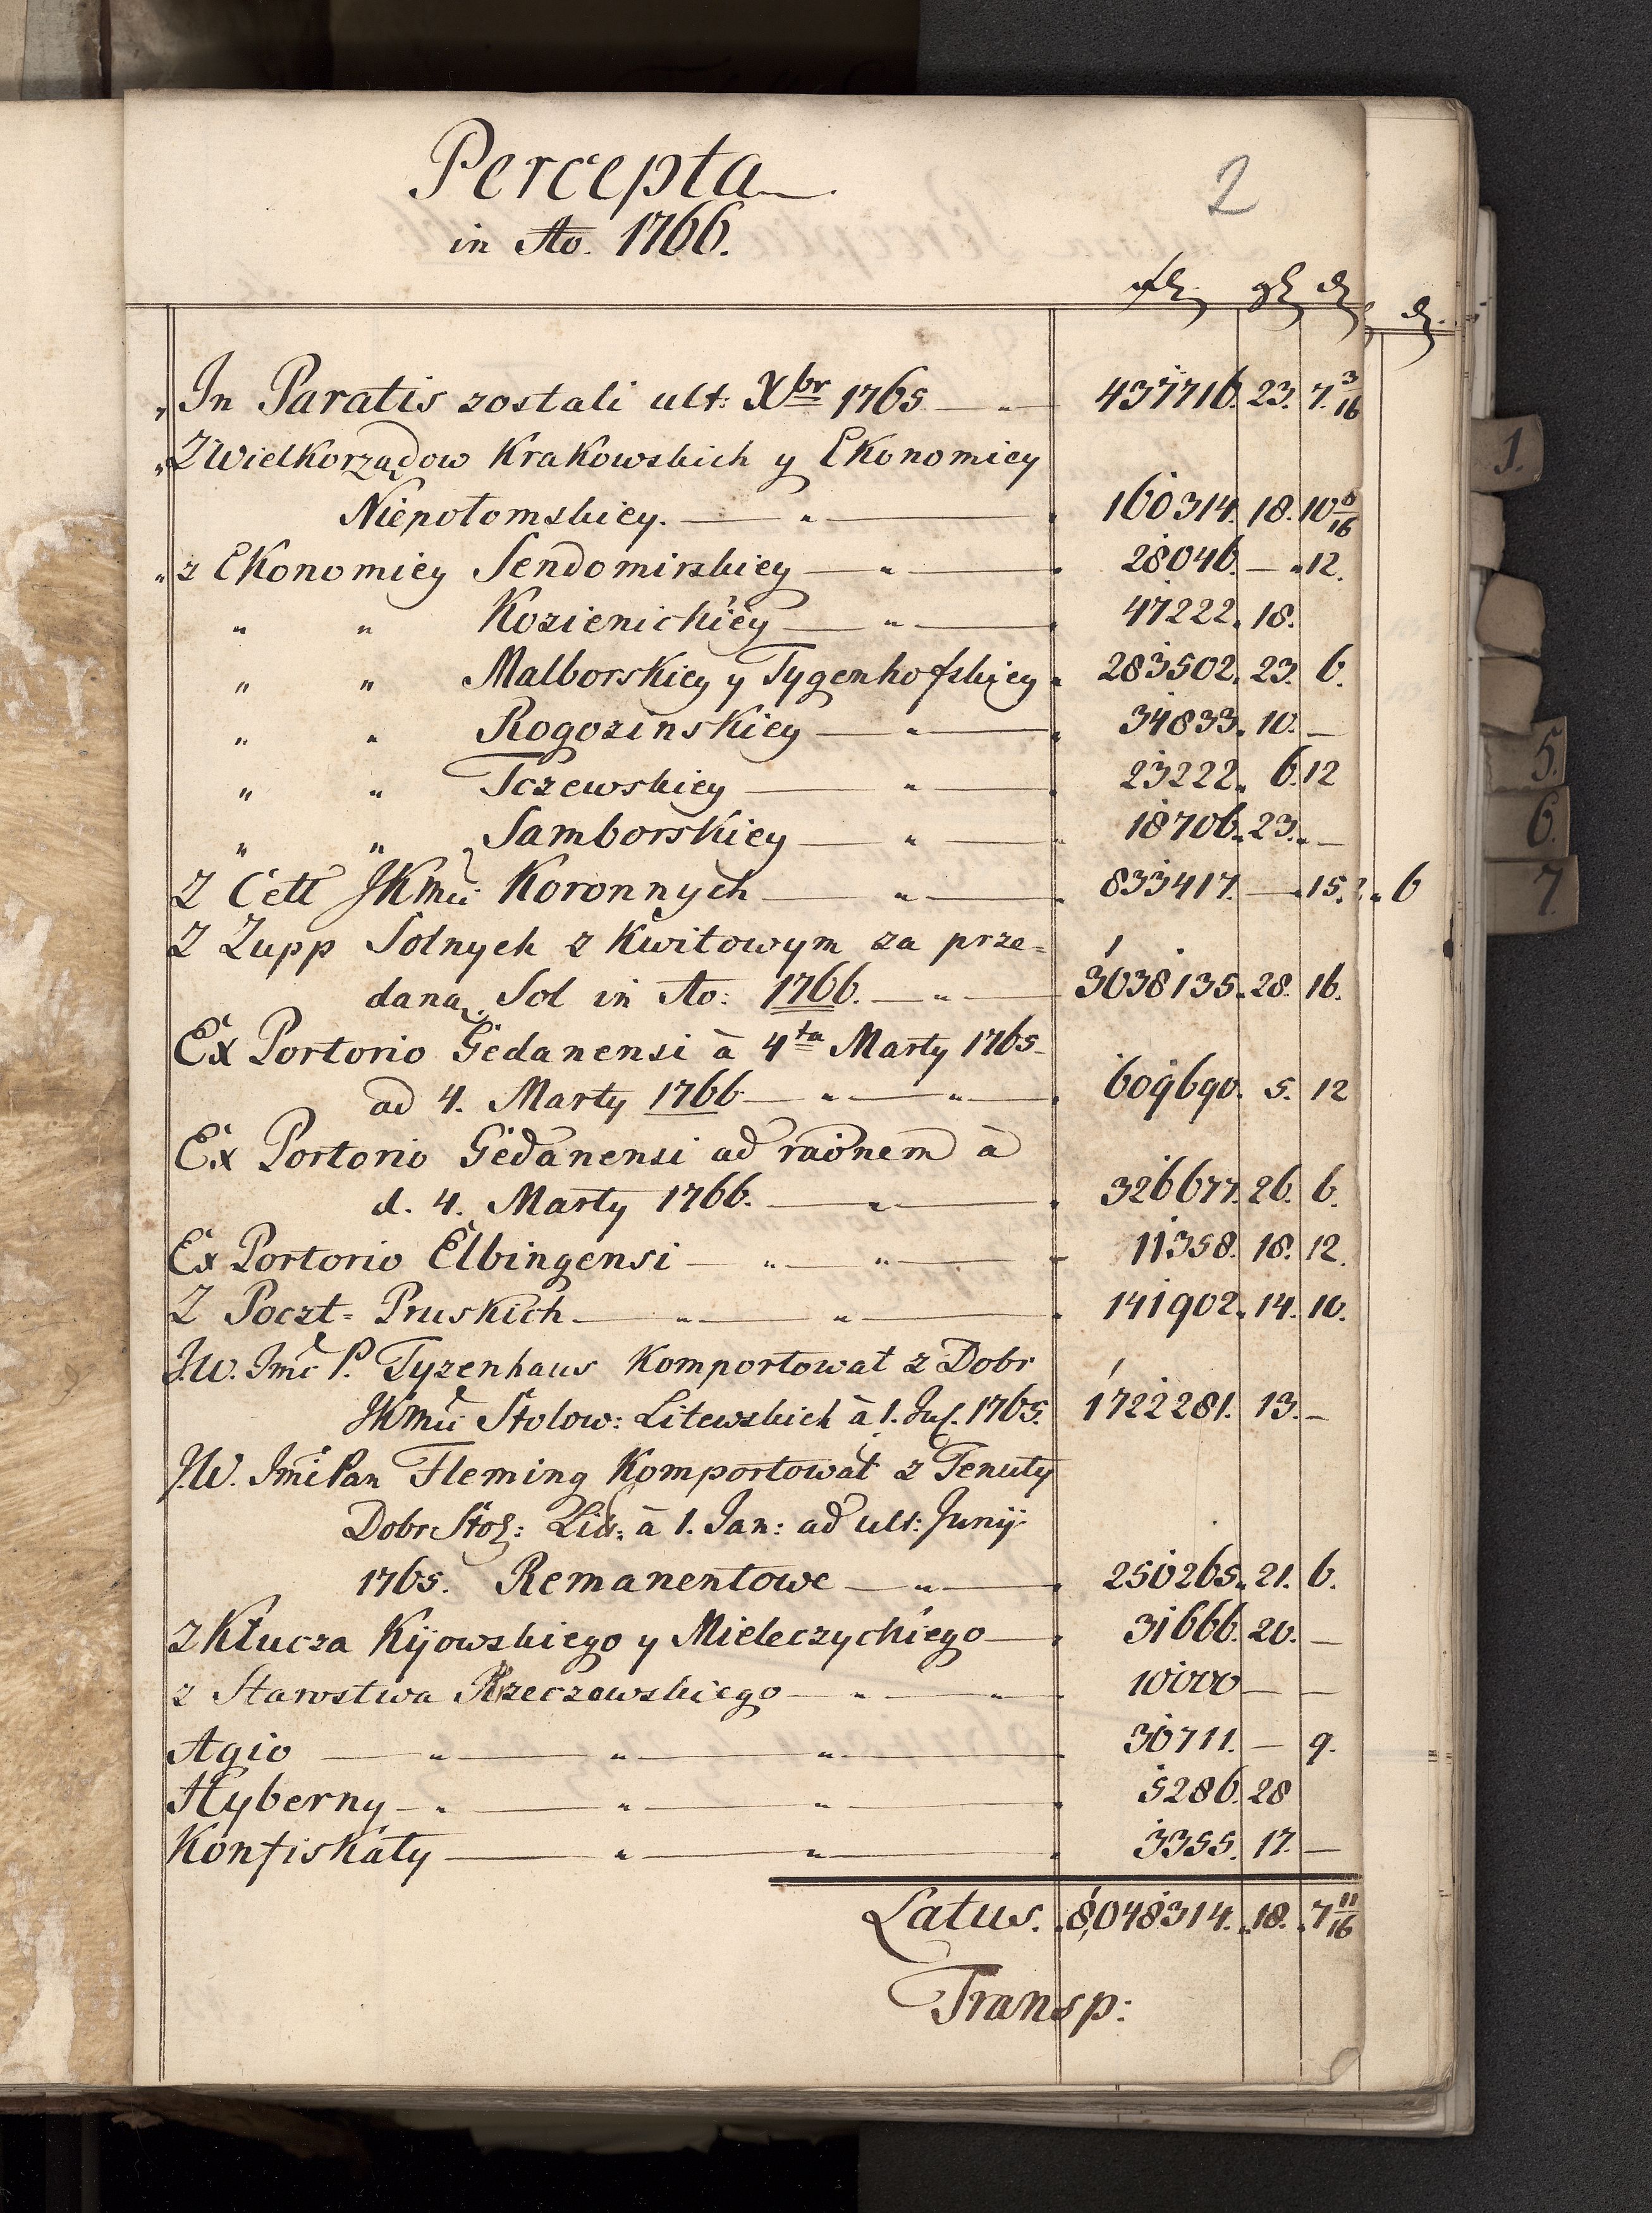 Percepta
2
in Ao. 1766.
fl. gr. d.
d.
In Paratis zostali ult: Xbr 1765 437716. 23. 7. 3/16
Z Wielkorządow Krakowskich y Ekonomiey
Niepołomskiey. 160314. 18. 10 8/16
z Ekonomiey Sendomirskiey 28046. — 12.
" " Kozienickiey 47222. 18.
" " Malborskiey y Tygenhofskiey 283502. 23. 6.
" " Rogozinskiey 34833. 10. —
" " Tczewskiey 23222. 6. 12
" " Samborskiey 18706. 23. —
Z Cełł JKMci Koronnych 833417. — 15.
6
Z Zupp Solnych z Kwitowym za prze=
daną Sol in Ao: 1766. 3038135. 28. 16.
Ex Portorio Gedanensi à 4ta Marty 1765
ad 4. Marty 1766 609690. 5. 12
Ex Portorio Gedanensi ad raōnem à
d. 4. Marty 1766. 326677. 26. 6.
Ex Portorio Elbingensi 11358. 18. 12.
Z Poczt= Pruskich 141902. 14. 10.
J.W. Jmć P. Tyzenhaus Komportował z Dobr
JKMci Stolow: Litewskich à 1. Jul. 1765. 1722281. 13. —
J.W. Jmć Pan Fleming Komportował z Tenuty
Dobr Stoł: Lit: à 1. Jan: ad ult: Junij
1765. Remanentowe 250265. 21. 6.
z Klucza Kijowskiego y Mieleczyckiego 31666. 20. —
z Starostwa Rzeczewskiego 10000 — —
Agio 30711. — 9.
Hyberny 5286. 28
Konfiskaty 3355. 17. —
Latus. 8,048314. 18. 7 11/16
Transp:
1.
5.
6.
7.